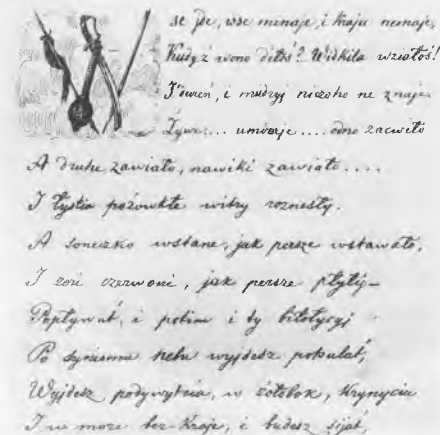 Wse jde, wse minaje, i kraju nemaje,
Kudy ż wono diłoś? Widkila wziałoś!
I dureń, i mudryj niczoho ne znaje.
Żywe... umiraje.... odno zacwiło
A druhe zawiało, nawiki zawiało....
I łystia pożowkłe witry roznesły.
A soneczko wstane, jak persze wstawało,
I zori czerwoni, jak persze płyły,
Popływut', i potim i ty biłołycyj
Po syniomu nebu wyjdesz pohulat',
Wyjdesz podywytcia, w żołobok, krynyciu
I w more bez kraje, i budesz sijat',